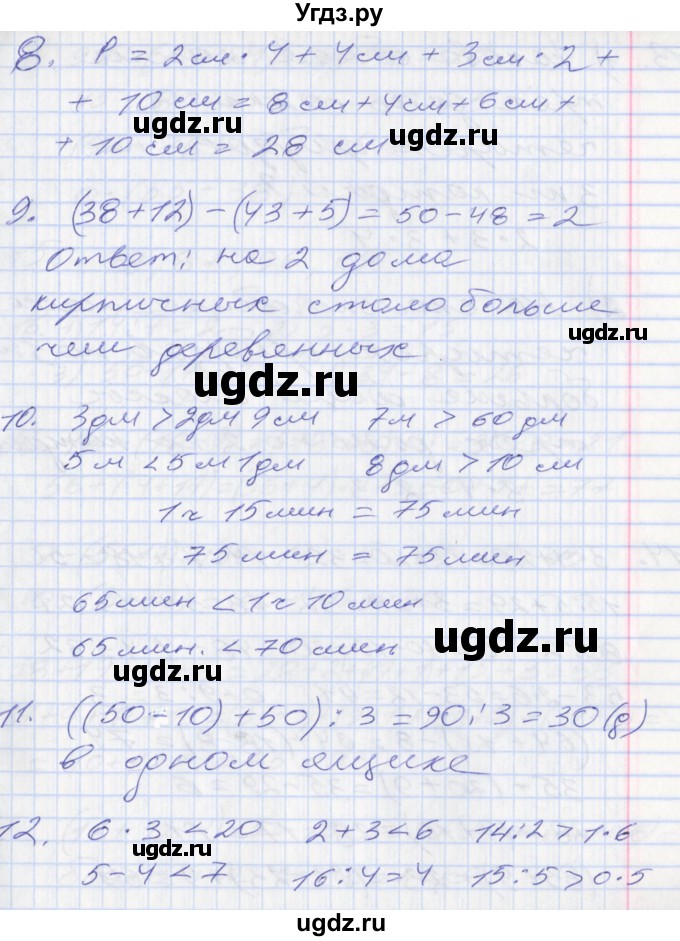 Угдз.ру
8. P = 2см · 4 + 4см + 3см · 2 +
+ 10 см = 8см + 4см + 6см +
+ 10 см = 28 см
ugdz.ru
ugdz.ru
9. (38+12) - (43+5) = 50 - 48 = 2
Ответ: на 2 дома
кирпичных стало больше
чем деревянных.
ugdz.ru
ugdz.ru
10. 3дм > 2дм 9 см 7м > 60 дм
5 м < 5 м 1дм 8 дм > 10 см
1 ч 15мин = 75 мин
75 мин = 75мин
65мин < 1 ч 10 мин
65 мин. < 70 мин
ugdz.ru
ugdz.ru
11. ((50-10)+50) : 3 = 90 : 3 = 30 (д)
в одном ящике
12. 6 · 3 < 20 2 + 3 < 6 14:2 > 1 · 6
ugdz.ru
ugdz.ru
5 - 4 < 7 16 : 4 = 4 15 : 5 > 0 · 5
ugdz.ru